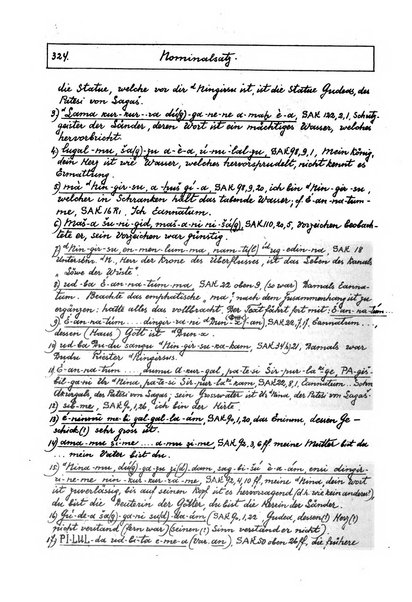 324. Nominalsatz.
die Statue, welche vor dir ᵈ Ningirsu ist, ist die Statue Gudeas, des
Patesi von Lagaš.
3) ᵈ Lama kur-kur-ra dú(g)-ga-ne-ne a-maḫ è-a, SAK 122, 2, 1, Schutz-
geister der Länder, deren Wort ist ein mächtiger Wasser, welches
hervorbricht.
4) lugal-mu, šà(g)-zu a-è-a ni-nu-lal-zu, SAK 98, 9, 1, Mein König,
dein Herz ist wie Wasser, welches hervorsprudelt, nicht kennt es
Ermattung.
5) má ᵈ Nin-gir-su, a-ḫuš gi-a, SAK 98, 9, 20, ich bin ᵈ Nin-gir-su,
welcher in Schranken hält das tobende Wasser, cf E-an-na-tum-
me, SAK 16 VI, Ich Eannatum.
6) Maš-a šu-ni-gid, maš-a-ni ni-šà(g), SAK 110, 20, 5, Vorzeichen beobach-
tete er, sein Vorzeichen war günstig.
7) ᵈ Nin-gir-su, en-men-lum-ma, nam-ti(l) sug-edin-na SAK 18
ᵈN. Herr der Krone des Überflusses, ist das Leben des Kanals
„Löwe der Wüste".
8) ud-ba E-an-na-tum-ma, SAK 22 oben 9, (so war) damals Eanna-
tum. Beachte das emphatische „ma", nach dem Zusammenhang ist zu
ergänzen: hatte alles das vollbracht. Der Text fährt fort mit: E-an-na-tum
9) E-an-na-tum ... dingir-ra-ni SAK 22, 7, Eannatum ...,
dessen (Haus) Gott ist
10) ud-ba Du-du sangu ᵈ Nin-gir-su-ka-kam, SAK 34 21, Damals war
Dudu Priester Ningirsus.
11) E-an-na-tum ... dumu A-kur-gal, pa-te-si Šir-pur-la-ge, PA-gis-
bil-ga-ni Ur-ᵈ Nina, pa-te-si Šir-pur-la-kam, SAK 22, 8, 1, Eannatum, Sohn
Akurgals, des Patesi von Lagaš, sein Grossvater ist Ur-Nina, der Patesi von Lagaš.
12) sib-me, SAK 90, 1, 26, „ich bin der Hirte".
13) E-ninnû me-bi gal-gal-la-ám, SAK 90, 1, 20, das Eninnu, dessen Ge-
schick (!) sehr gross ist.
14) ama-mu zi-me ... a-mu zi-me, SAK 92, 3, 6 ff meine Mutter bist du
... mein Vater bist du.
15) ᵈ Nina-mu, dú(g)-ga-zu zi(d)-dam, sag-bi-šú è-a-ám, ensi dingir-
ri-ne-me nin-kur-kur-ra-me, SAK 92, 4, 10 ff, meine ᵈ Nina, dein Wort
ist zuverlässig, bis auf seinen Kopf ist es hervorragend (d.h. wie kein anderes!),
du bist die Deuterin der Götter, du bist die Herrin der Länder.
16) Gú-de-a šà(g)-ga-ni su(d)-da-ám, SAK 90, 1, 22 Gudea, dessen (!) Herz (!)
nicht verstand (fern war) (seinen (!) Sinn verstand er nicht).
17) PI-LUL-da ud-bi-ta e-me-a(m), SAK 50 oben 26 ff, die frühere